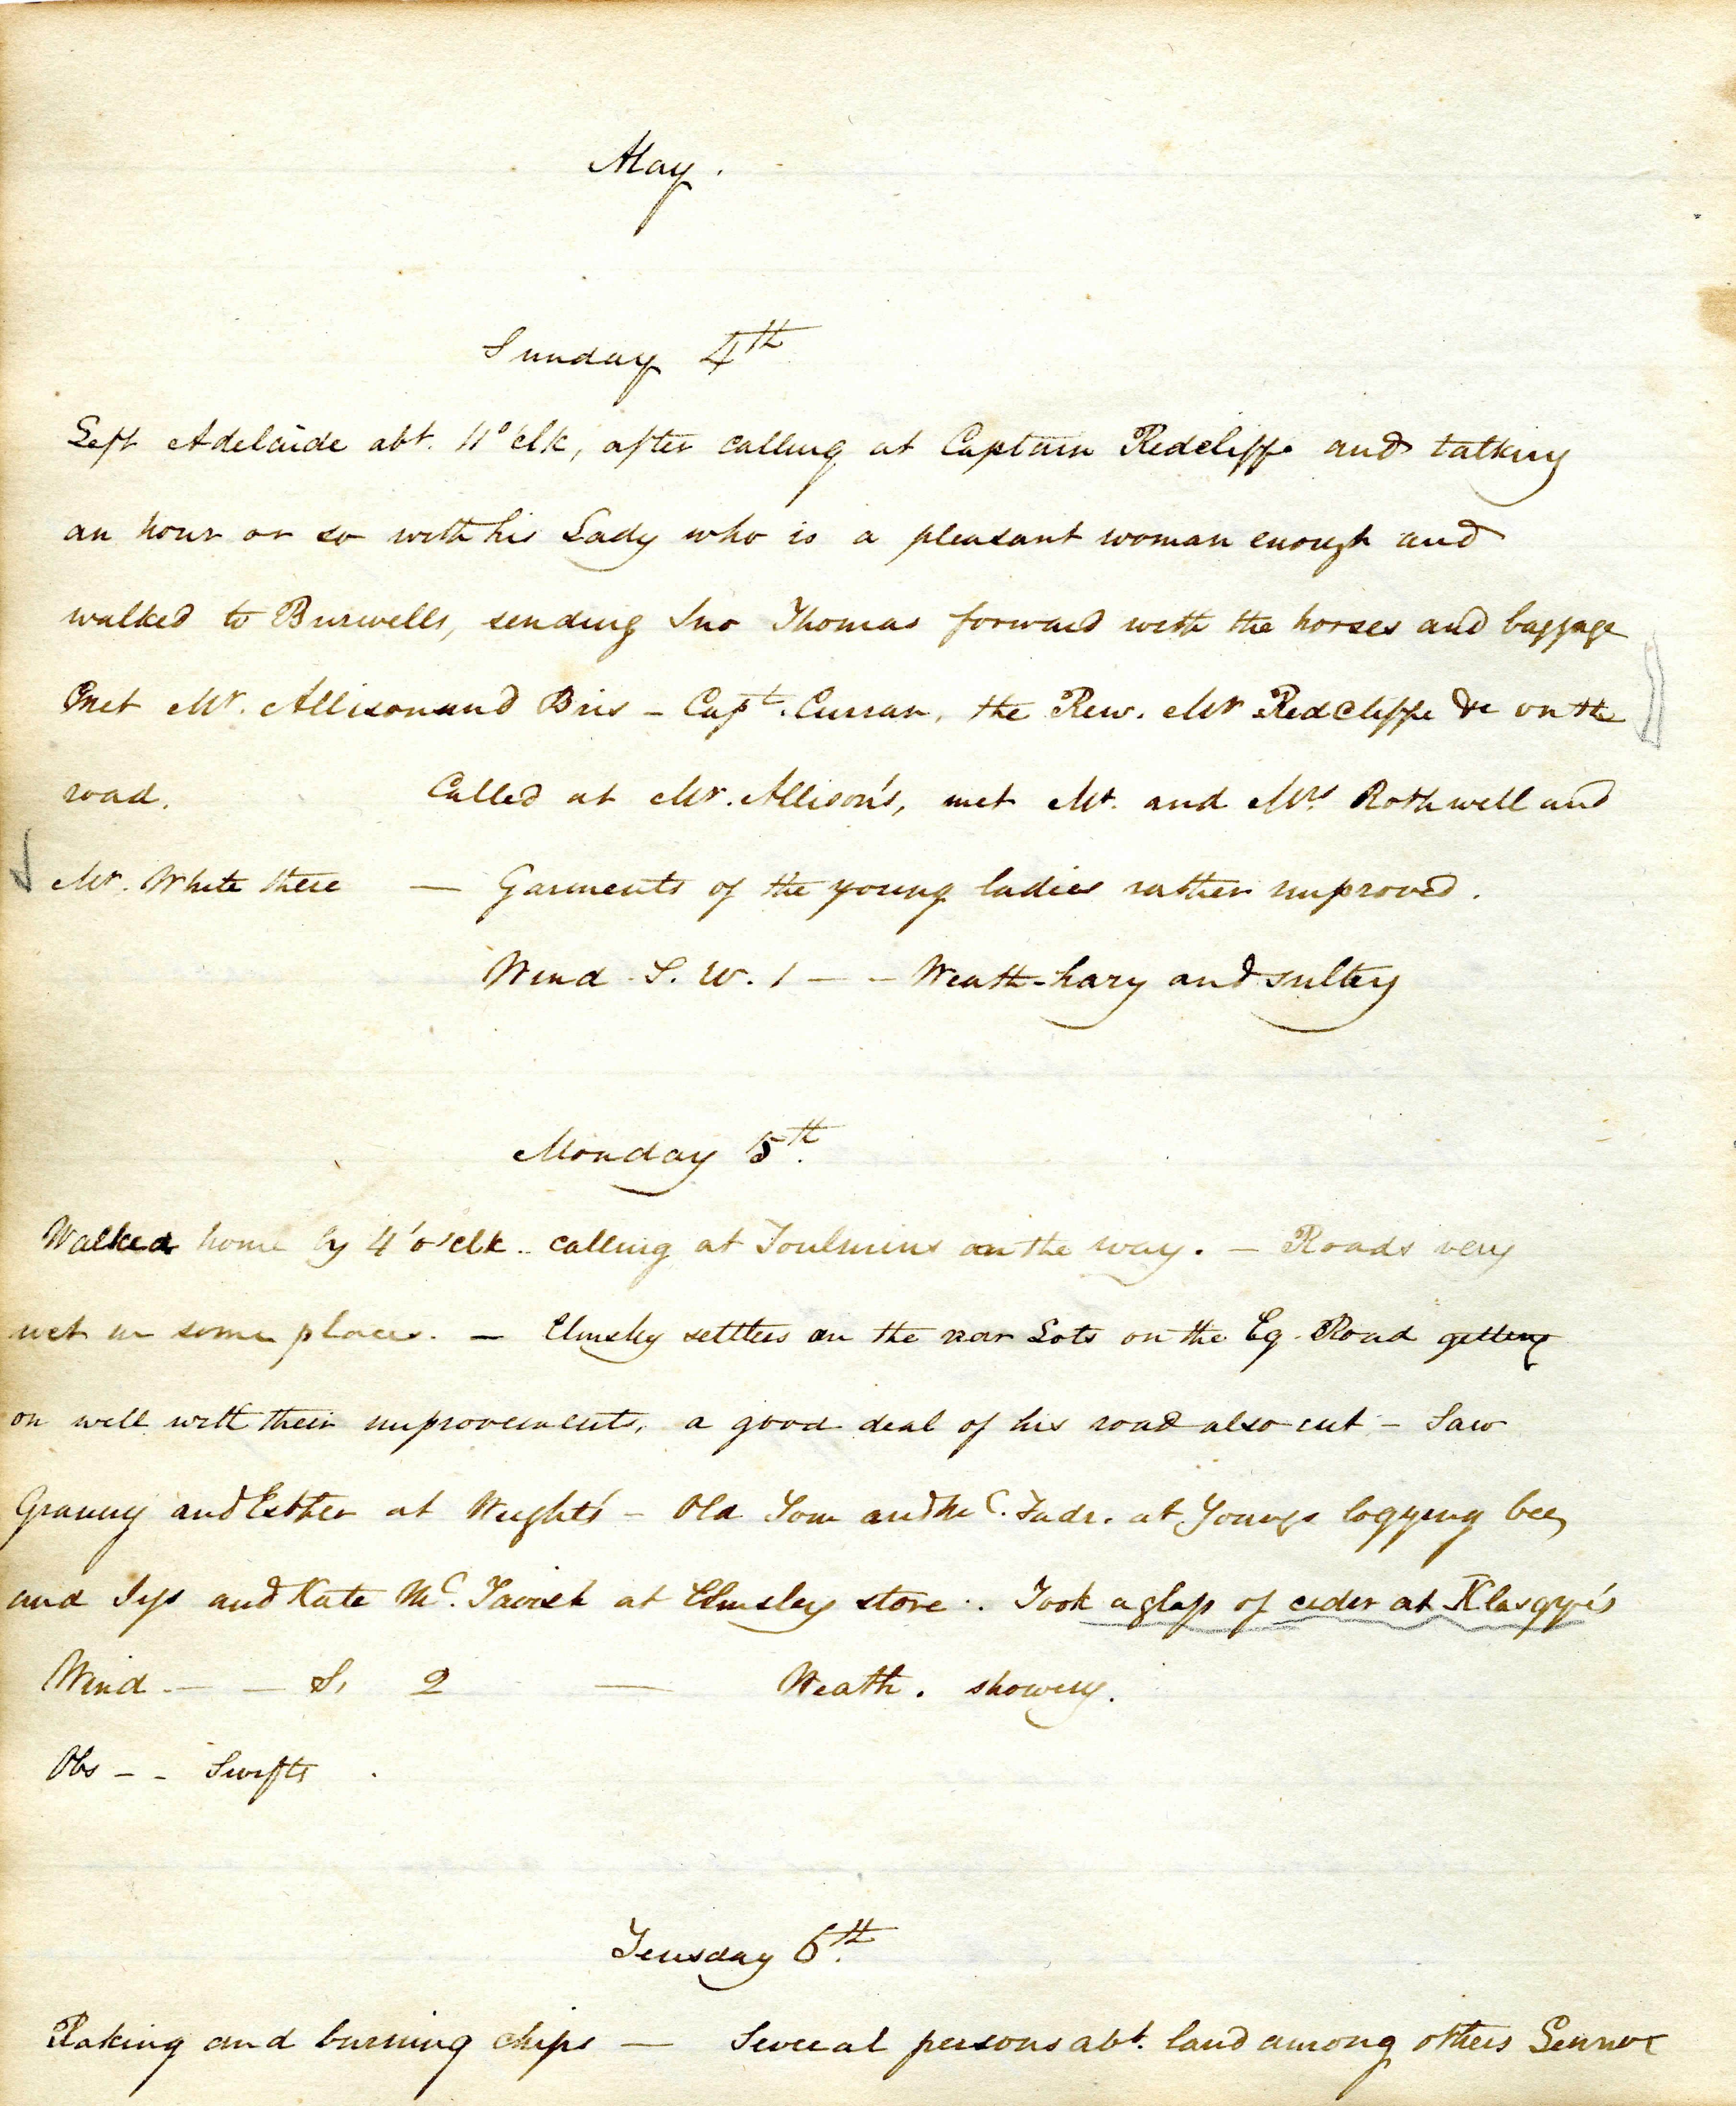 May.
Sunday 4th
Left Adelaide abt. 11 o'clk, after calling at Captain Redcliffe and talking
an hour or so with his Lady who is a pleasant woman enough and
walked to Burwells, sending Jno Thomas forward with the horses and baggage
met Mr. Allison and Bris - Capt. Curran, the Rev. Mr Redcliffe &c on the
road. Called at Mr. Allison's, met Mr. and Mrs Rothwell and
Mr. White there — Garments of the young ladies rather improved.
Wind S. W. 1 - - Weath - hazy and sultry
Monday 5th.
Walked home by 4 o'clk.. calling at Toulmins on the way. — Roads very
wet in some places. — Elmsley settlers on the rear Lots on the Eg. Road getting
on well with their improvements, a good deal of his road also cut - Saw
Granny and Esther at Wright's - Old Tom and Mc. Fadn. at Youngs logging bee,
and and Kate Mc. Tavish at Elmsley store.. Took a glass of cider at
Wind - — S. 2 — Weath. showery.
Obs - - Swifts.
Teusday 6th.
Raking and burning chips — Several persons abt. land among others